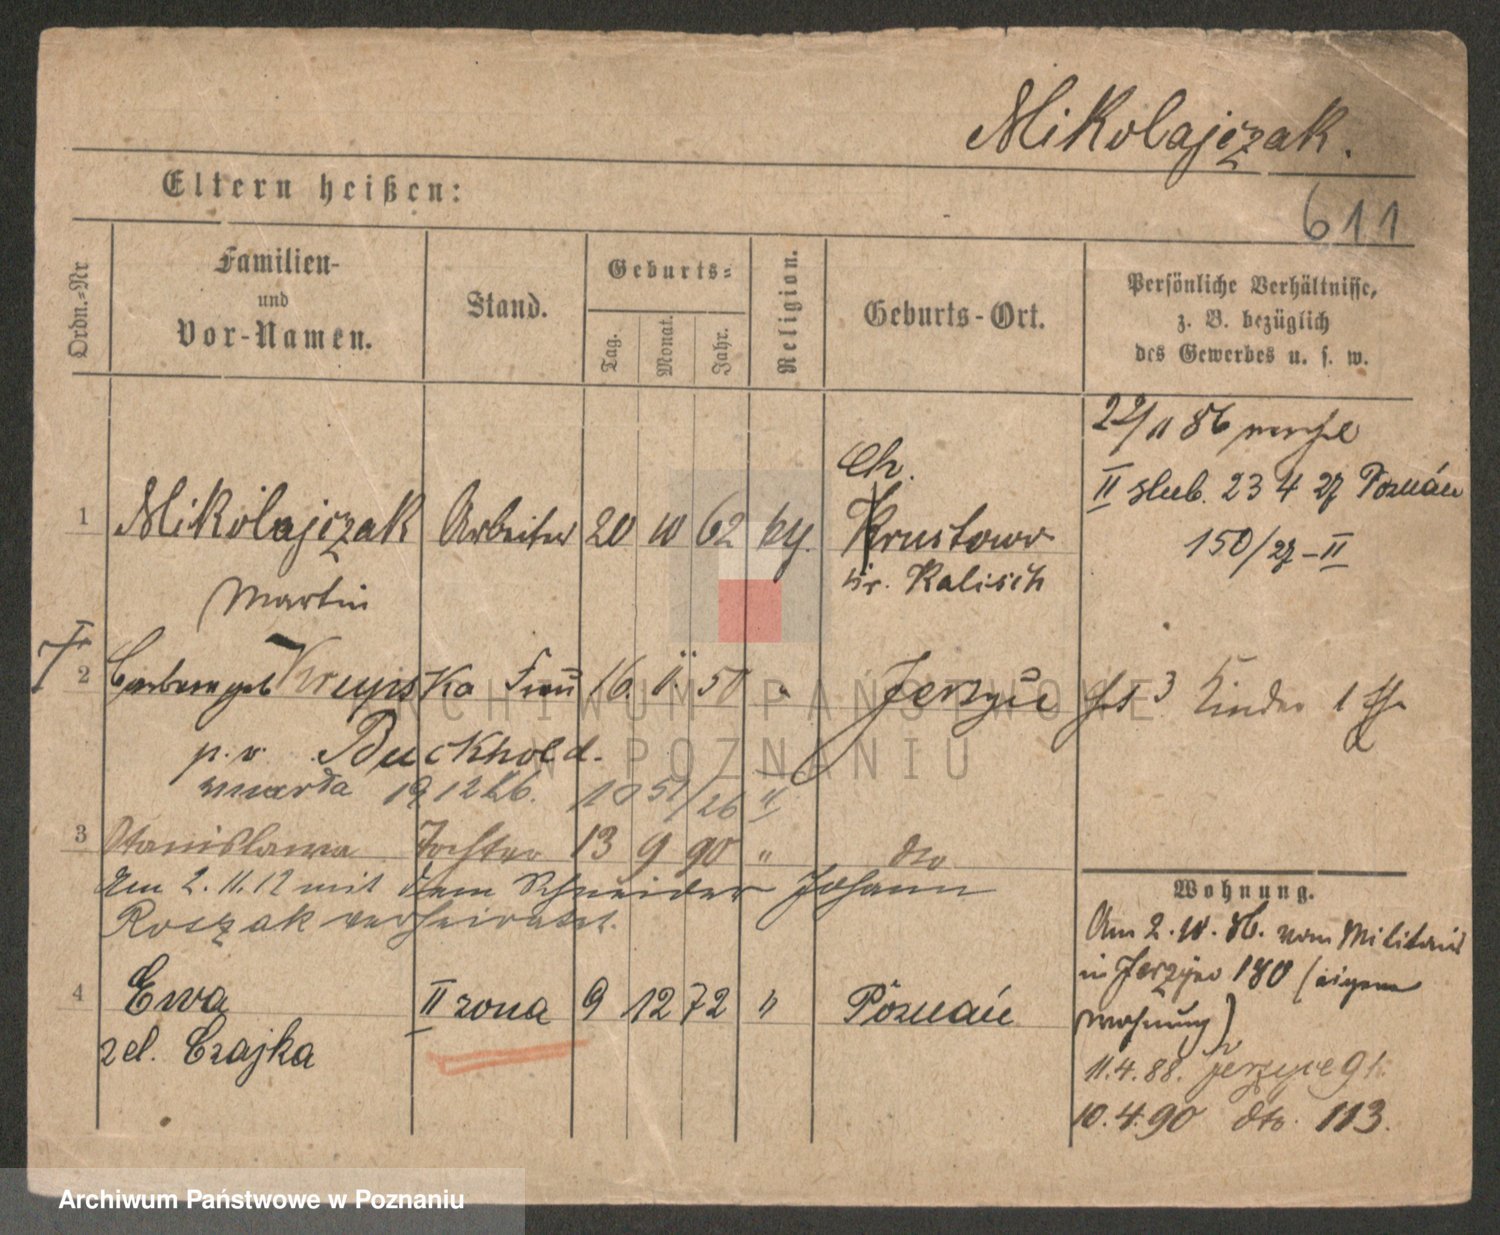 Mikolajczak.
Eltern heißen:
611
Ordn.=Nr
Familien-
und
Vor-Namen.
Stand.
Geburts=
Tag.
Monat.
Jahr.
Religion.
Geburts-Ort.
Persönliche Verhältnisse,
z. B. bezüglich
des Gewerbes u. s. w.
22/11 86
II slub. 23 4 27 Poznań
150/27-II
1 Mikolajczak Arbeiter 20 10 62 Ch. Krustowo
Martin Kr. Kalisch
2 geb Krupska Frau 16. 11. 50 " Jerzyce 3 Kinder 1
p. v. Buckhold.
zmarła 19 12 26. 1051/26 II
3 Stanislawa Tochter 13 9 90 " dto
Am 2. 11. 12 mit dem Schneider Johann
Roszak verheiratet.
4 Ewa II żona 9 12 72 " Poznań
zel. Czajka
Wohnung.
Am 2. 10. 86. vom Militair
in Jerzyce 180 (eigene
Wohnung)
11. 4. 88. Jerzyce 91.
10. 4. 90 dto. 113.
ARCHIWUM PAŃSTWOWE
W POZNANIU
Archiwum Państwowe w Poznaniu